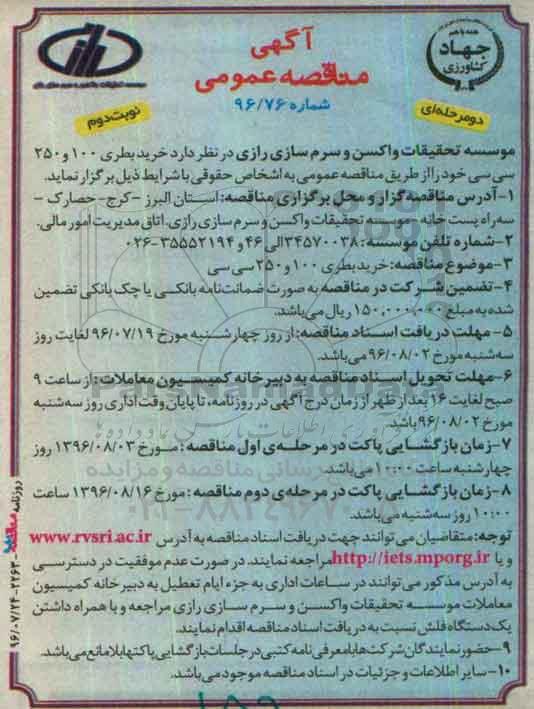 آگهی
مناقصه عمومی
شماره ۹۶/۷۶
همه با هم
جهاد
کشاورزی
دومرحله‌ای
نوبت دوم
موسسه تحقیقات واکسن و سرم سازی رازی در نظر دارد خرید بطری ۱۰۰ و ۲۵۰
سی سی خود را از طریق مناقصه عمومی به اشخاص حقوقی با شرایط ذیل برگزار نماید.
۱- آدرس مناقصه‌گزار و محل برگزاری مناقصه: استان البرز - کرج - حصارک -
سه راه پست خانه - موسسه تحقیقات واکسن و سرم سازی رازی. اتاق مدیریت امور مالی.
۲- شماره تلفن موسسه: ۳۴۵۷۰۰۳۸ الی ۴۶ و ۳۵۵۵۲۱۹۴-۰۲۶
۳- موضوع مناقصه: خرید بطری ۱۰۰ و ۲۵۰ سی سی
۴- تضمین شرکت در مناقصه به صورت ضمانت‌نامه بانکی یا چک بانکی تضمین
شده به مبلغ ۱۵۰,۰۰۰,۰۰۰ ریال می‌باشد.
۵- مهلت دریافت اسناد مناقصه: از روز چهارشنبه مورخ ۹۶/۰۷/۱۹ لغایت روز
سه‌شنبه مورخ ۹۶/۰۸/۰۲ می‌باشد.
۶- مهلت تحویل اسناد مناقصه به دبیرخانه کمیسیون معاملات: از ساعت ۹
صبح لغایت ۱۶ بعد از ظهر از زمان درج آگهی در روزنامه، تا پایان وقت اداری روز سه‌شنبه
مورخ ۹۶/۰۸/۰۲ باشد.
۷- زمان بازگشایی پاکت در مرحله‌ی اول مناقصه: مورخ ۱۳۹۶/۰۸/۰۳ روز
چهارشنبه ساعت ۱۰:۰۰ می‌باشد.
۸- زمان بازگشایی پاکت در مرحله‌ی دوم مناقصه: مورخ ۱۳۹۶/۰۸/۱۶ ساعت
۱۰:۰۰ روز سه‌شنبه می‌باشد.
توجه: متقاضیان می‌توانند جهت دریافت اسناد مناقصه به آدرس www.rvsri.ac.ir
و یا http://iets.mporg.ir مراجعه نمایند. در صورت عدم موفقیت در دسترسی
به آدرس مذکور می‌توانند در ساعات اداری به جزء ایام تعطیل به دبیرخانه کمیسیون
معاملات موسسه تحقیقات واکسن و سرم سازی رازی مراجعه و با همراه داشتن
یک دستگاه فلش نسبت به دریافت اسناد مناقصه اقدام نمایند.
۹- حضور نمایندگان شرکت‌ها با معرفی‌نامه کتبی در جلسات بازگشایی پاکتها بلامانع می‌باشد.
۱۰- سایر اطلاعات و جزئیات در اسناد مناقصه موجود می‌باشد.
روزنامه مناقصه ۲۲۶۳-۹۶/۰۷/۲۴
۰۲۱-۸۸۳۴۹۶۷۰